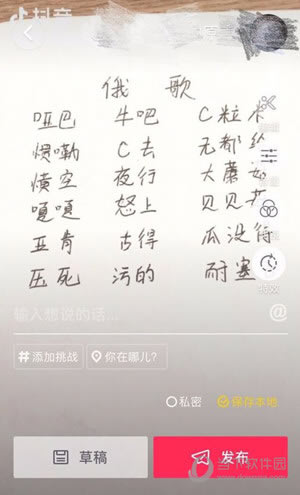 抖音
俄 歌
哑巴 牛吧 C粒
惯嘞 C去 无都
横空 夜行 大蘑
嘎嘎 怒上 贝贝
亚肯 古得 瓜没
压死 污的 耐塞
特效
输入想说的话... @
#添加挑战 你在哪儿?
私密 保存本地
草稿 发布
当下软件园